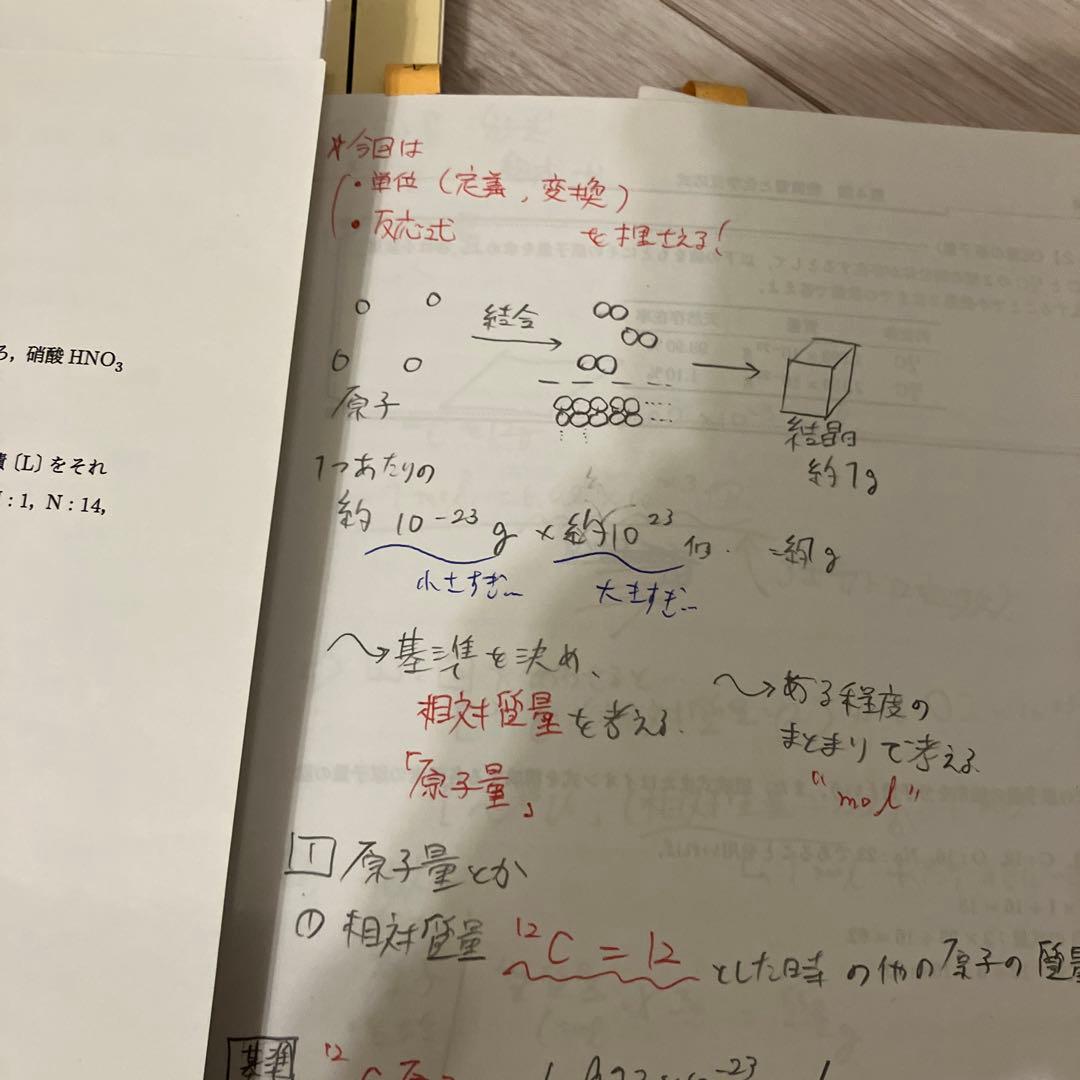 ろ，硝酸 HNO₃
〔L〕をそれ
: 1, N : 14,
*今回は
・単位（定義，変換）
・反応式 を押さえる!
結合
原子
結晶
約1g
1つあたりの
約 10⁻²³ g × 約10²³ 個 = 約1g
小さすぎ… 大きすぎ…
基準を決め、
相対質量を考える.
「原子量」
ある程度の
まとまりで考える
"mol"
1 原子量とか
① 相対質量 ¹²C = 12 とした時の他の原子の質量
基準 ¹²C